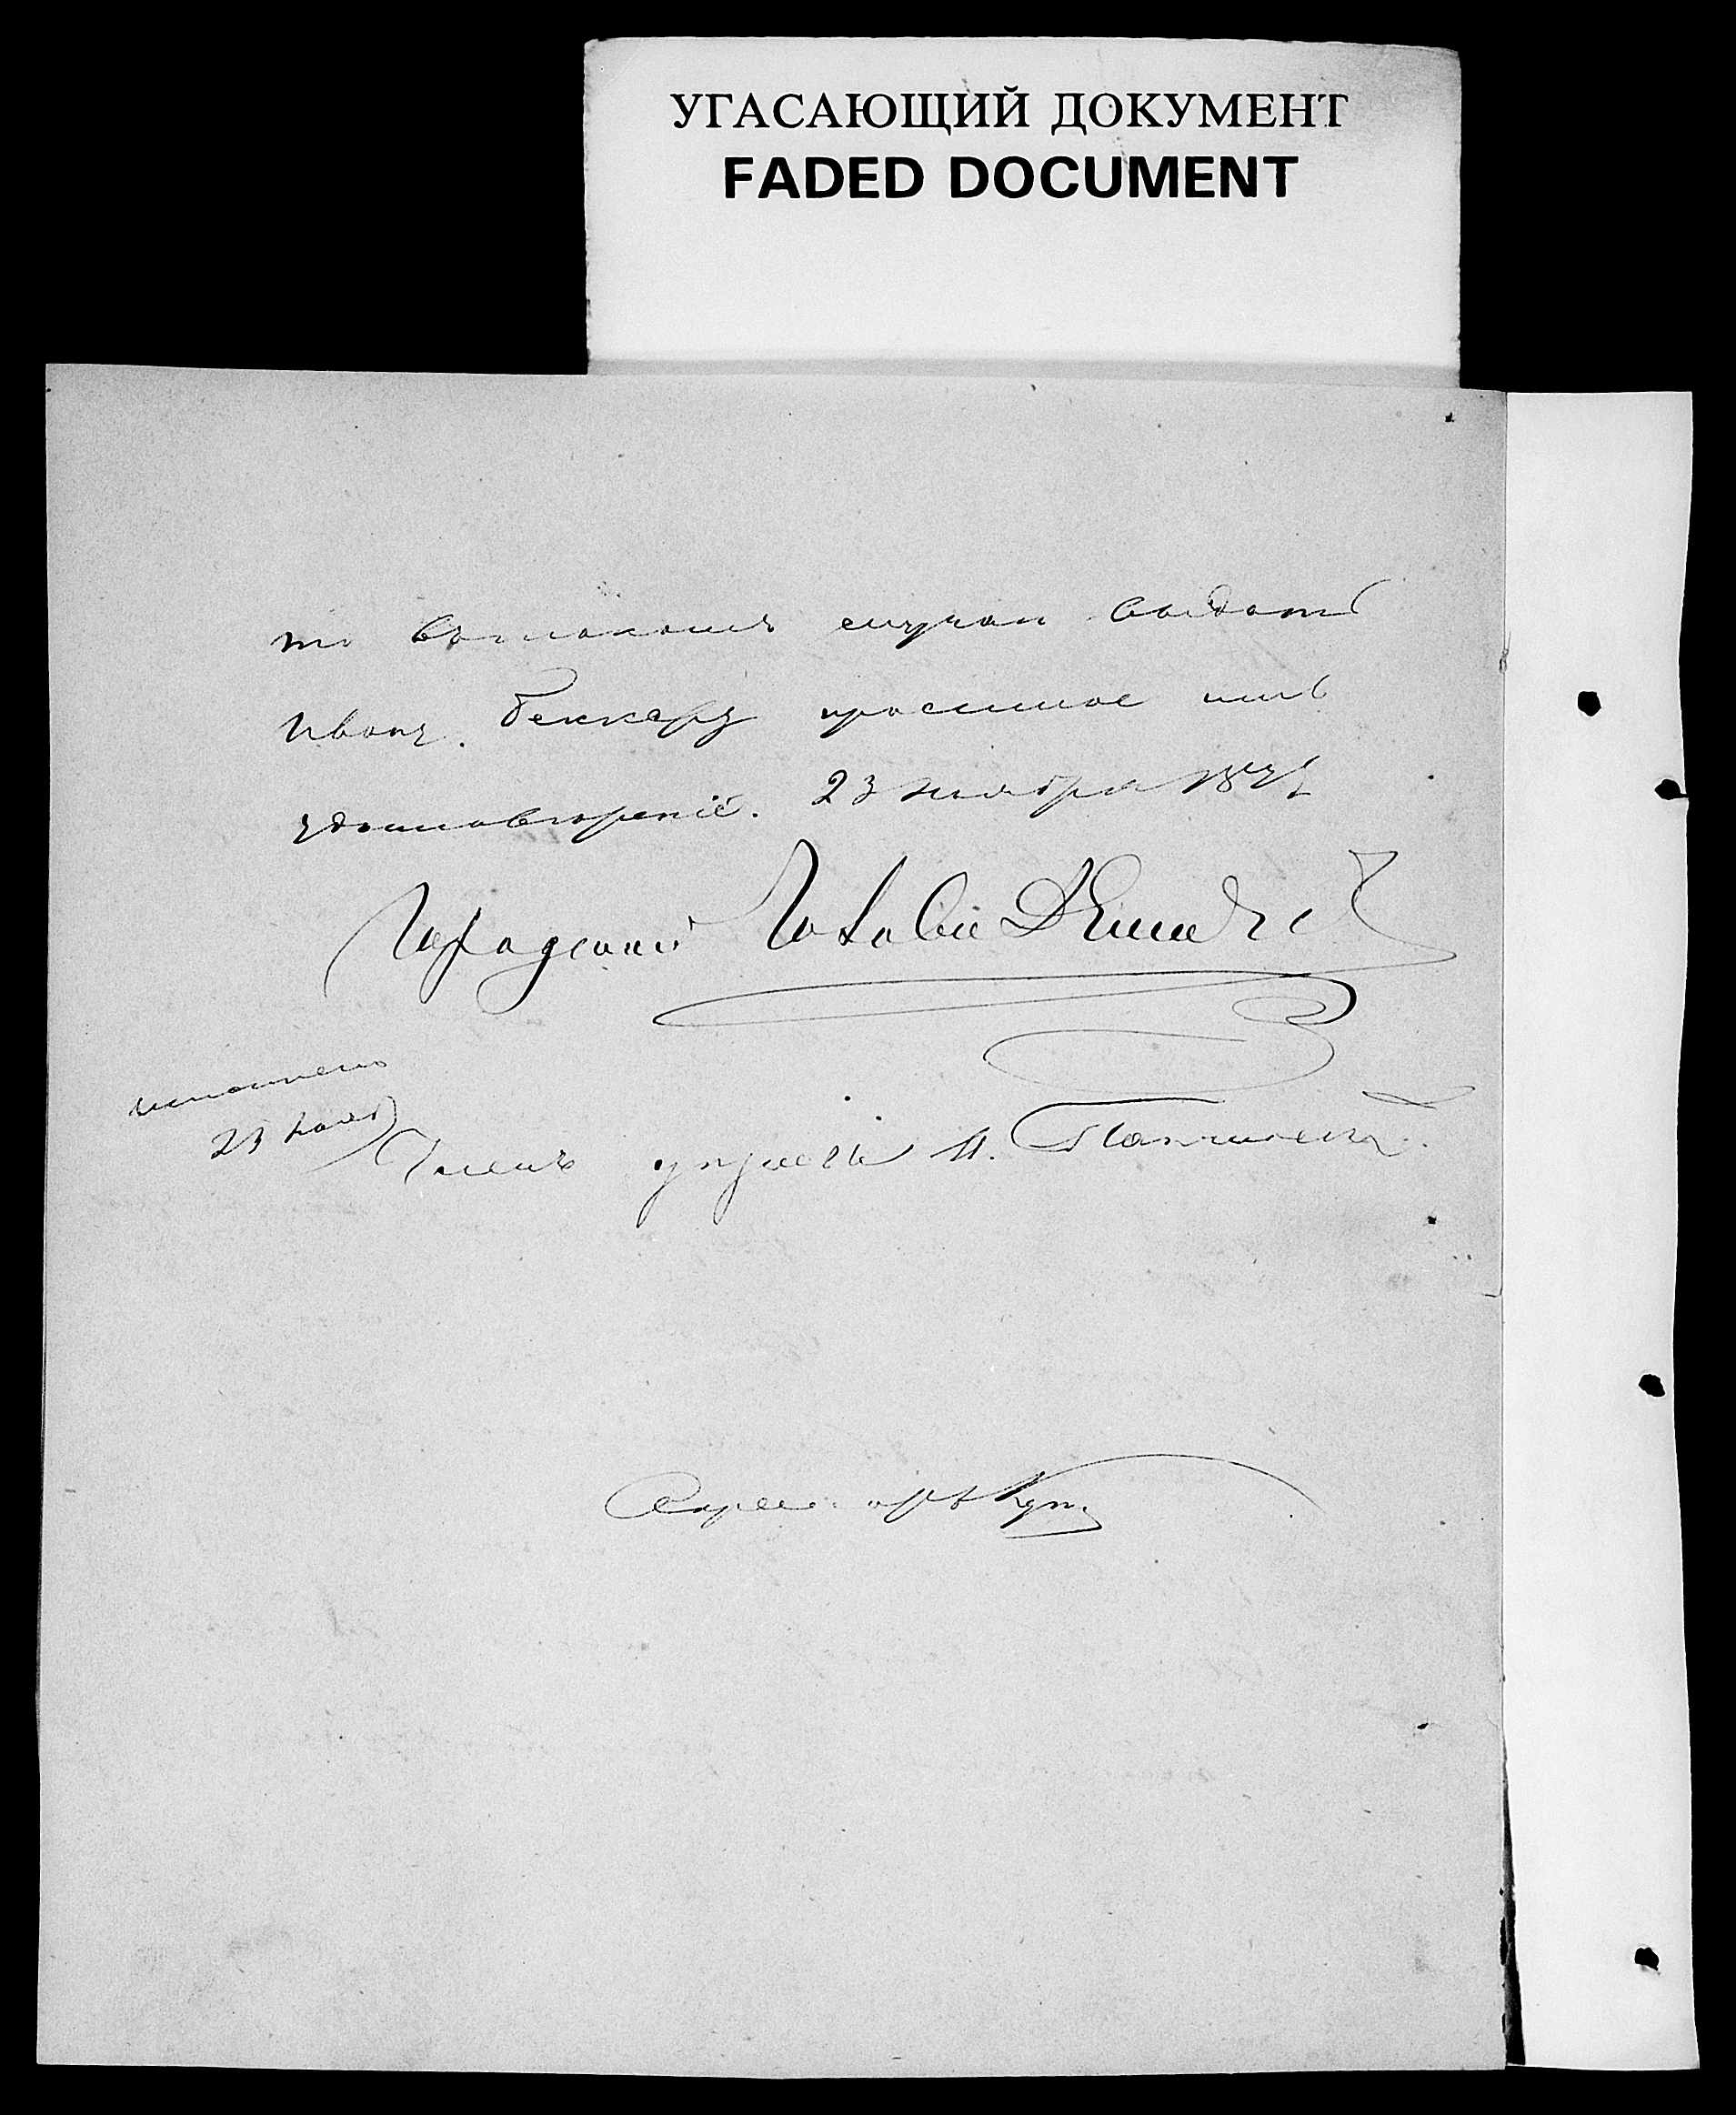 УГАСАЮЩИЙ ДОКУМЕНТ
FADED DOCUMENT
то въ такомъ случаи выдать
Ивану Беккеру просимое имъ
удостоверенiе. 23 ноября
Городской Голова
исполнено
23 нояб
Членъ управы
Секретарь